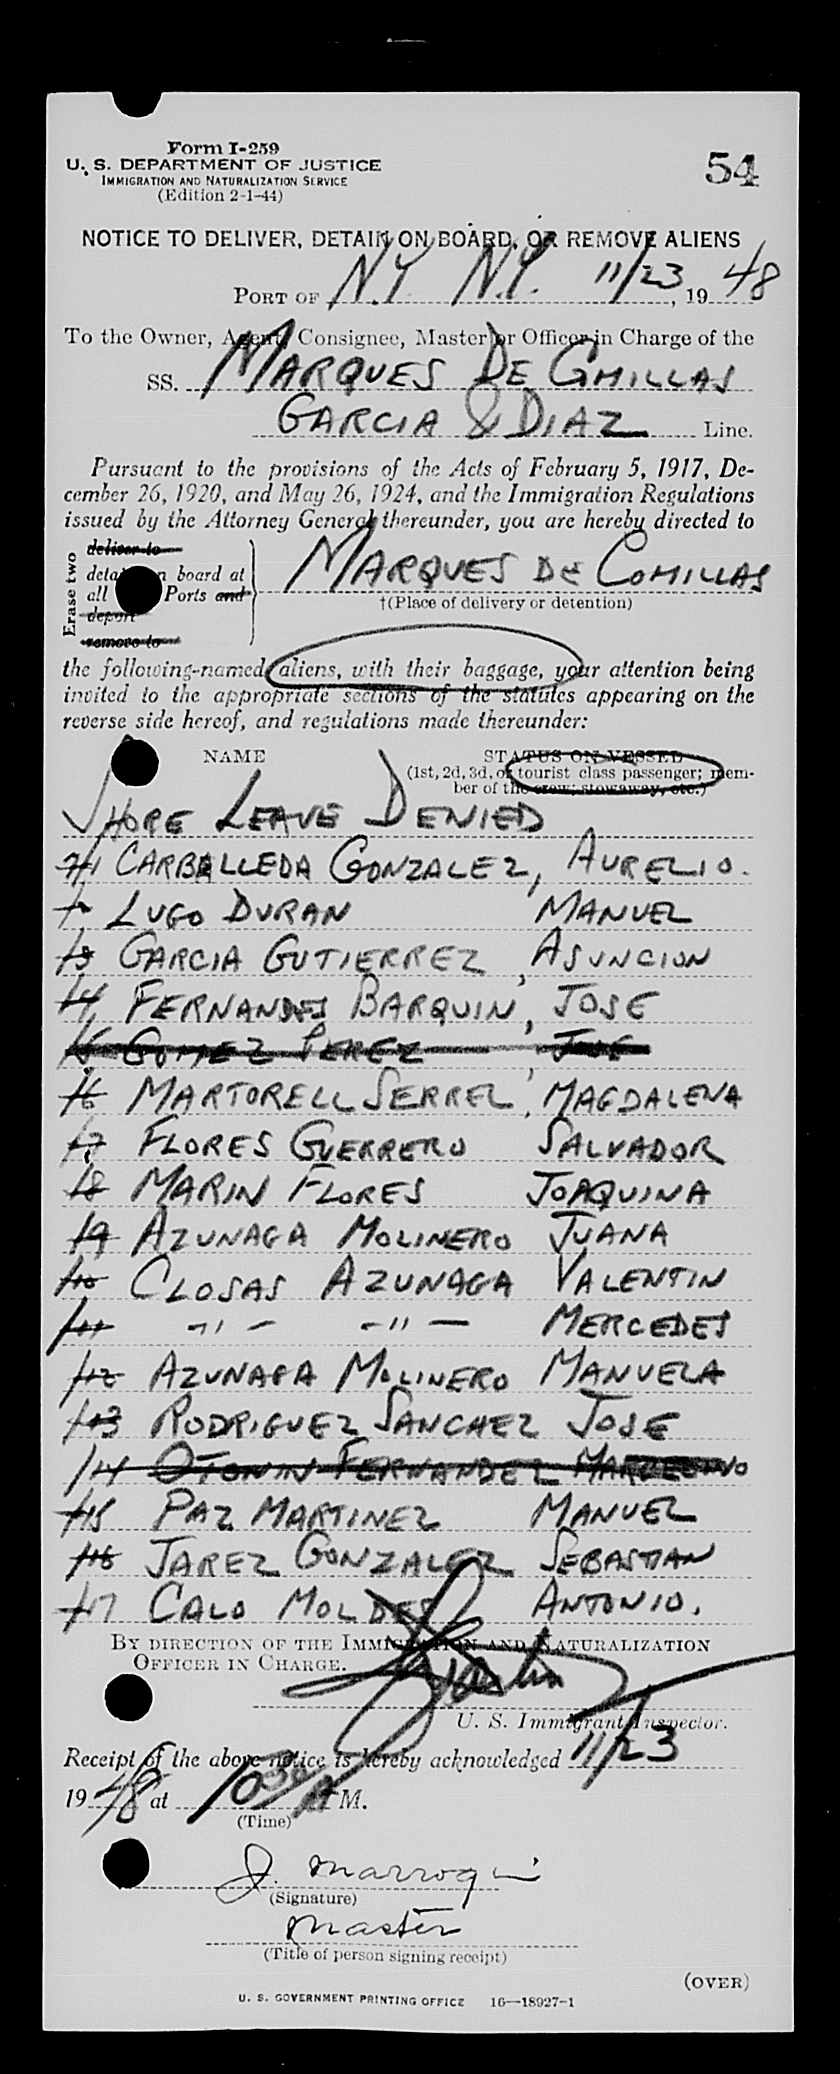 Form I-259
U. S. DEPARTMENT OF JUSTICE
IMMIGRATION AND NATURALIZATION SERVICE
(Edition 2-1-44)
54
NOTICE TO DELIVER, DETAIN ON BOARD, OR REMOVE ALIENS
PORT OF N.Y. N.Y. 11/23, 1948
To the Owner, Agent, Consignee, Master or Officer in Charge of the
SS. MARQUES DE CMILLAS
GARCIA & DIAZ Line.
Pursuant to the provisions of the Acts of February 5, 1917, De-
cember 26, 1920, and May 26, 1924, and the Immigration Regulations
issued by the Attorney General thereunder, you are hereby directed to
Erase two
deliver to
detain on board at
all Ports and
deport
remove to
MARQUES DE COMILLAS
†(Place of delivery or detention)
the following-named aliens, with their baggage, your attention being
invited to the appropriate sections of the statutes appearing on the
reverse side hereof, and regulations made thereunder:
NAME STATUS ON VESSEL
(1st, 2d, 3d, or tourist class passenger; mem-
ber of the crew; stowaway, etc.)
SHORE LEAVE DENIED
1 CARBALLEDA GONZALEZ, AURELIO.
LUGO DURAN MANUEL
3 GARCIA GUTIERREZ, ASUNCION
4 FERNANDES BARQUIN, JOSE
5 GOMEZ PEREZ JOSE
6 MARTORELL SERREL, MAGDALENA
7 FLORES GUERRERO SALVADOR
8 MARIN FLORES JOAQUINA
9 AZUNAGA MOLINERO JUANA
10 CLOSAS AZUNAGA VALENTIN
11 -"- -"- MERCEDES
12 AZUNAGA MOLINERO MANUELA
13 RODRIGUEZ SANCHEZ JOSE
14 OTONIN FERNANDEZ
15 PAZ MARTINEZ MANUEL
16 JAREZ GONZALEZ SEBASTIAN
17 CALO MOLDES ANTONIO.
BY DIRECTION OF THE IMMIGRATION AND NATURALIZATION
OFFICER IN CHARGE.
U. S. Immigrant Inspector.
Receipt of the above notice is hereby acknowledged 11/23
1948 at 10 30 A M.
(Time)
J. Marroqui
(Signature)
Master
(Title of person signing receipt)
(OVER)
U. S. GOVERNMENT PRINTING OFFICE 16—18927-1